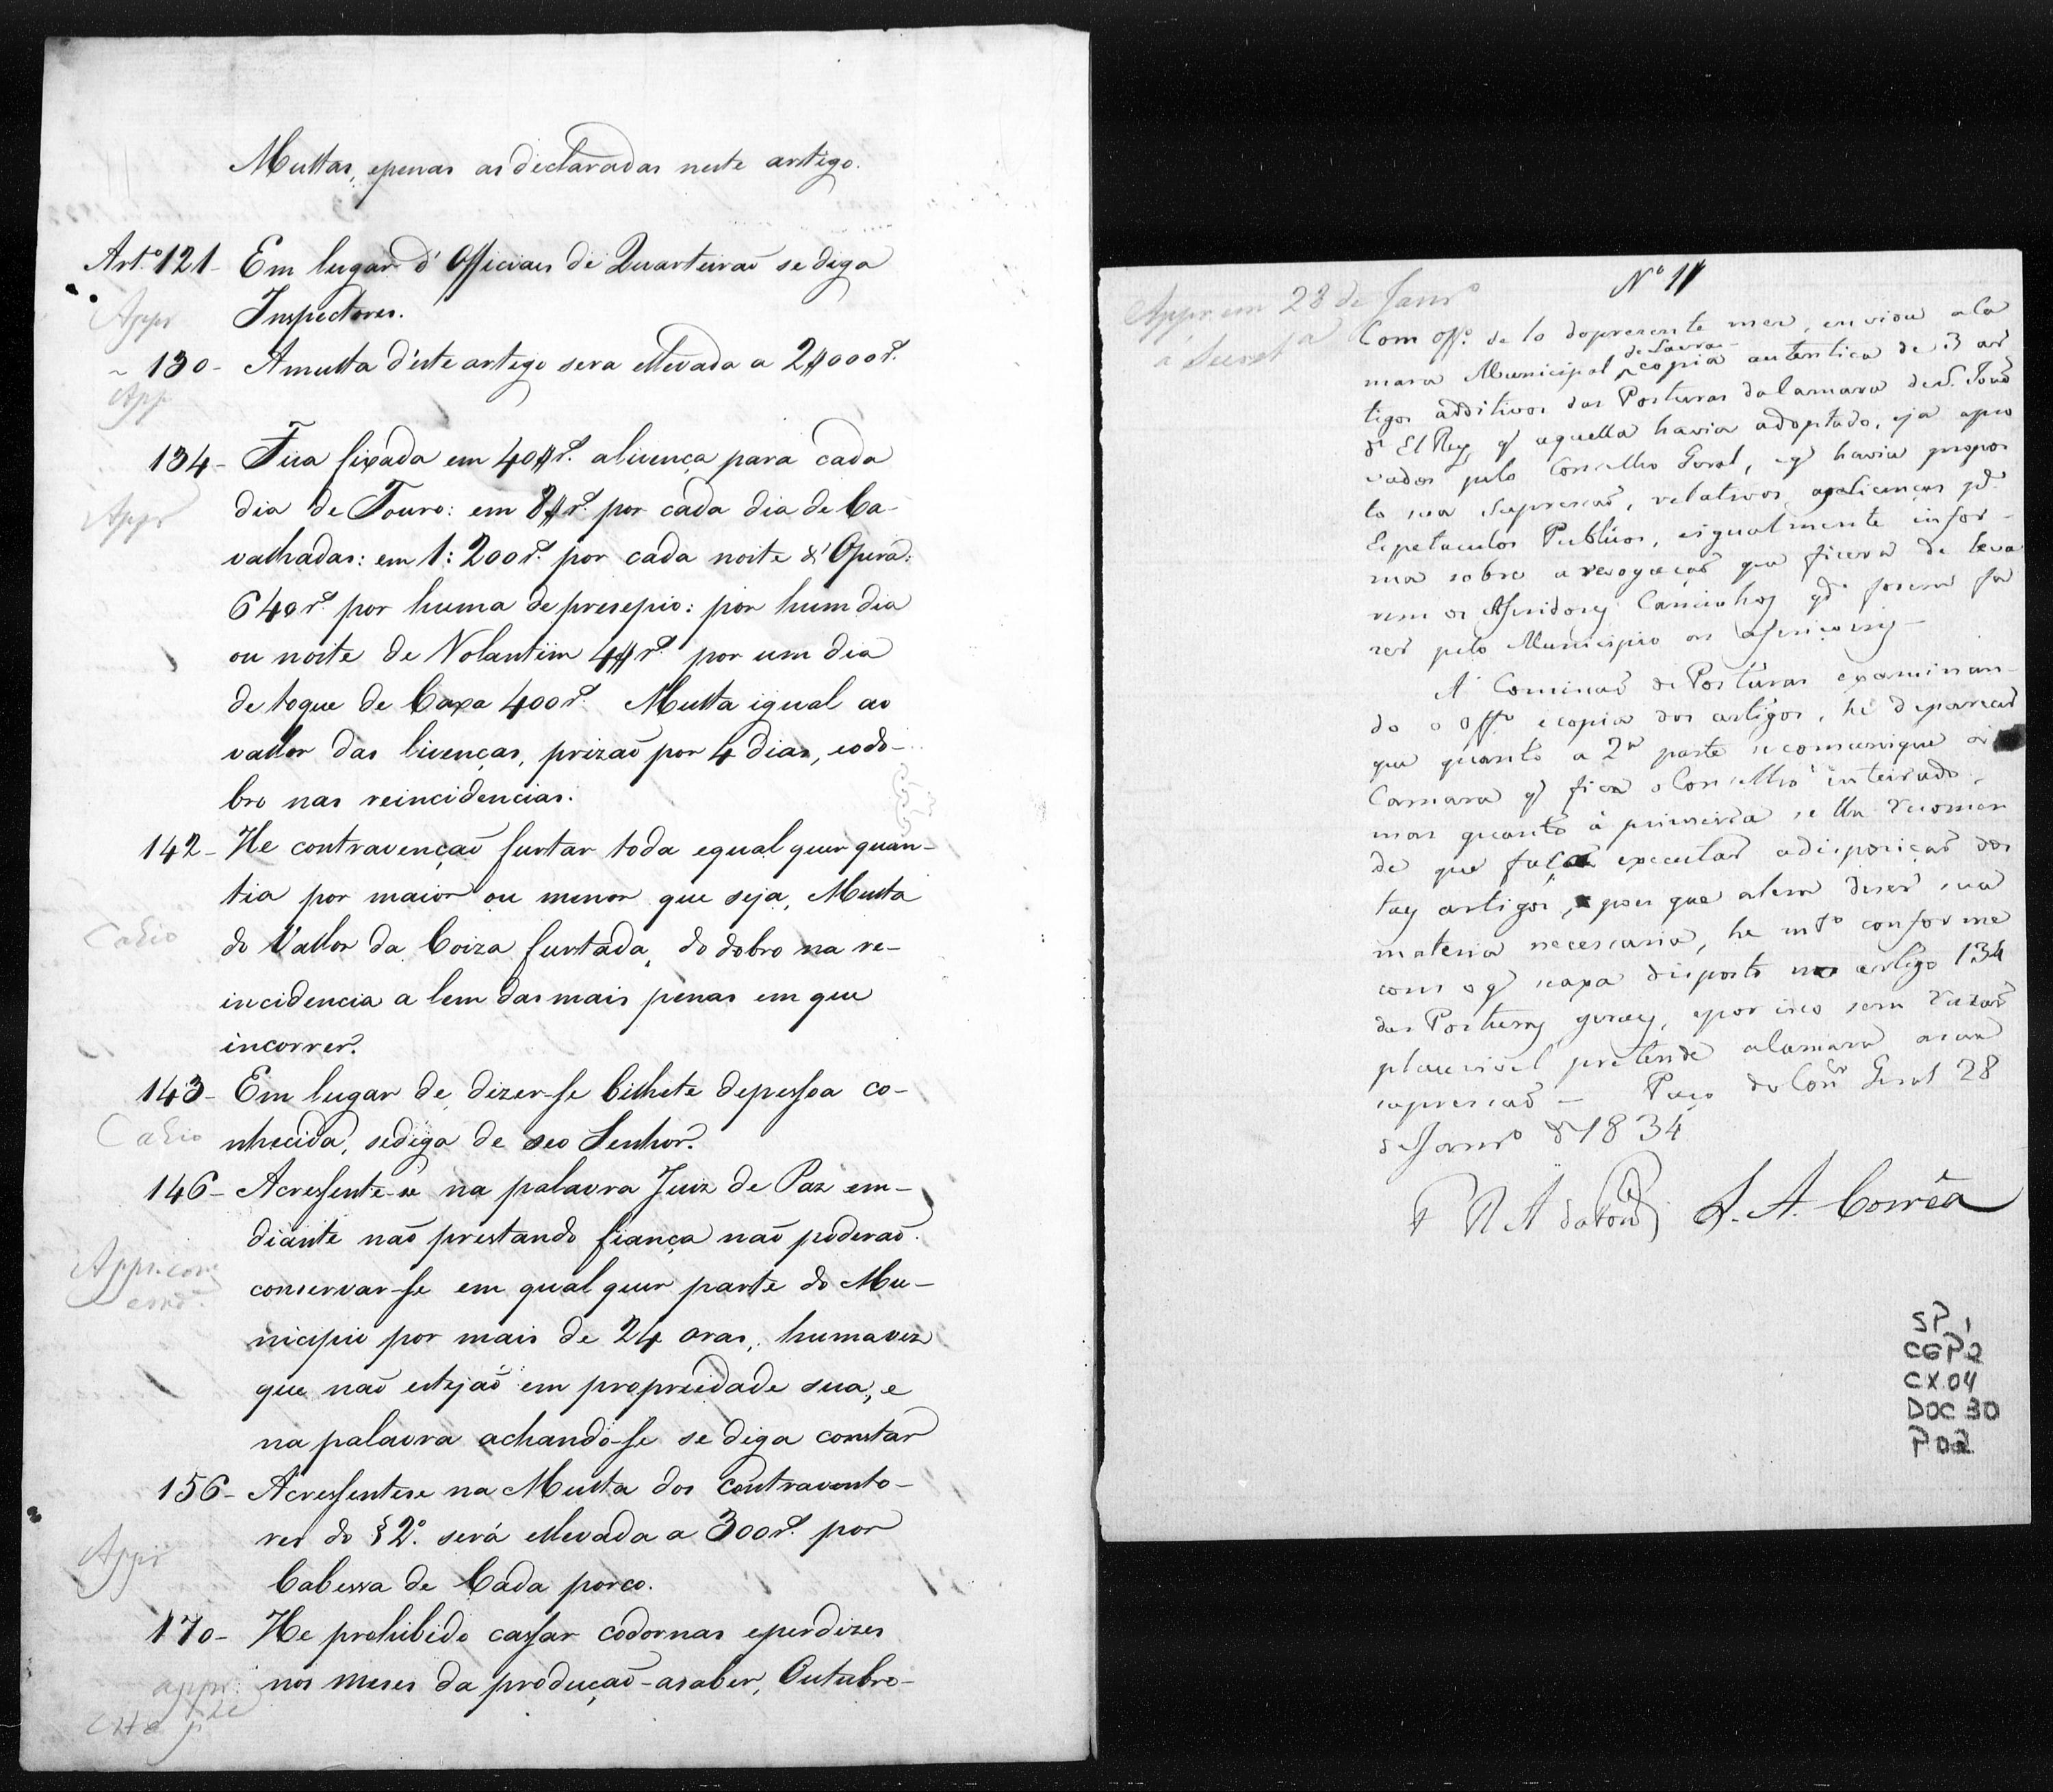 Multas, epenas as declaradas neste artigo.
Art.º 121 - Em lugar d' Officiaes de Quarteiraõ se diga
Appr Inspectores.
~ 130 - Amulta d'este artigo sera ellevada a 2$000rs.
App
134 - Fica fixada em 40$rs. alicença para cada
Appr dia de Touro: em 8$rs. por cada dia de Ca-
valhadas: em 1:200rs. por cada noite d' Opera:
640rs. por huma de presepio: por hum dia
ou noite de Volantim 4$rs. por um dia
de toque de Caxa 400rs. Multa igual ao
vallor das licenças, prizaõ por 4 dias, eodo-
bro nas reincidencias.
142 - He contravençaõ furtar toda equal quer quan-
tia por maior ou menor que seja, Multa
Cahio do Vallor da Coiza furtada, do dobro na re-
incidencia a lem das mais penas em que
incorrer.
143 - Em lugar de dizer-se bilhete depessoa co-
Cahio nhecida, sediga de seo Senhor.
146 - Acressente-se na palavra Juiz de Paz em-
diante naõ prestando fiança naõ poderaõ
Appr. com conservar-se em qual quer parte do Mu-
emd.
nicipio por mais de 24 oras, humavez
que naõ estejaõ em propriedade sua, e
na palavra achando-se se diga constar
156 - Acressentese na Multa dos contravento-
res do § 2º. será ellevada a 300rs. por
Appr
Cabessa de Cada porco.
170 - He prohibido cassar codornas eperdizes
appr. nos meses da produçaõ - asaber, Outubro -
Nº 11
Appr. em 28 de Janrº
á Secretª
Com offº. de 10 dopresente mes, enviou aCa
mara Municipal de Lavras copia autentica de 3 ar
tigos additivos das Posturas daCamara de S. Joaõ
d' El Rey, q' aquella havia adoptado, eja apro
vados pelo Conselho Geral, eq' havia propos
to sua supressaõ, relativos as licenças pª.
Espetaculos Publicos, eigualmente infor-
ma sobre a revogaçaõ que fizera de leva
rem os Aferidores Caminhos qdº forem fa
zer pelo Municipio as afericoens -
A' Comissaõ de Posturas examinan-
do o Offº ecopia dos artigos, hé deparecer
que quanto a 2ª parte secomunique á
Camara q' fica o Conselho inteirado,
mas quanto á primeira se lhe recomen
de que faça executar adisposiçaõ dos
taes artigos, pois que alem deser sua
materia necessaria, he mtº conforme
com oq' seaxa disposto no artigo 134
das Posturas geraes, epor isso sem razaõ
plausivel pretende aCamara asua
supressaõ - Paço do Conº Geral 28
de Janrº de 1834
L. A. Corrêa
SP 1
CGP2
CX.04
DOC 30
P 02